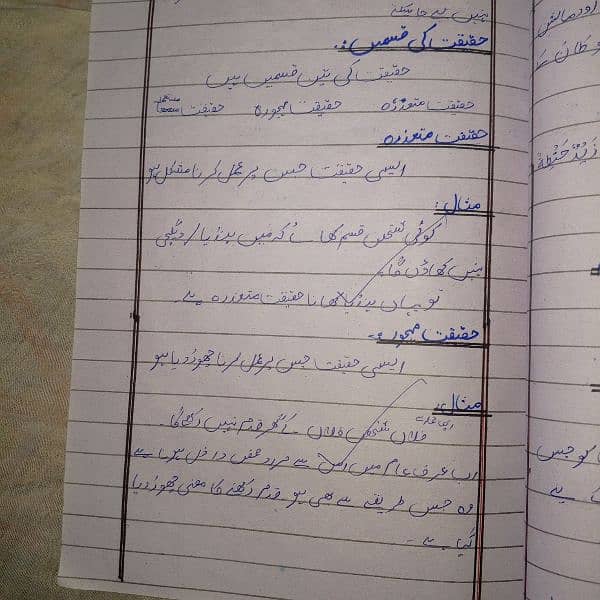 نہیں کیے جا سکتے
حقیقت کی قسمیں:
حقیقت کی تین قسمیں ہیں
حقیقت متعذرہ حقیقت مہجورہ حقیقت مستعملہ
حقیقت متعذرہ
ایسی حقیقت جس پر عمل کرنا مشکل ہو
مثال:
کوئی شخص قسم کھائے کہ میں ہنڈیا / دیگچی
نہیں کھاؤں گا۔
تو یہاں ہنڈیا کھانا حقیقت متعذرہ ہے۔
حقیقت مہجورہ:
ایسی حقیقت جس پر عمل کرنا چھوڑ دیا ہو
مثال:
فلاں شخص فلاں کے گھر قدم نہیں رکھے گا۔
اب عرف عام میں اس سے مراد محض داخل ہونا ہے
وہ جس طریقے سے بھی ہو قدم رکھنے کا معنی چھوڑ دیا
گیا ہے۔
اور
زَيْدٌ حِنْطَةً
کو جس
کے یہ